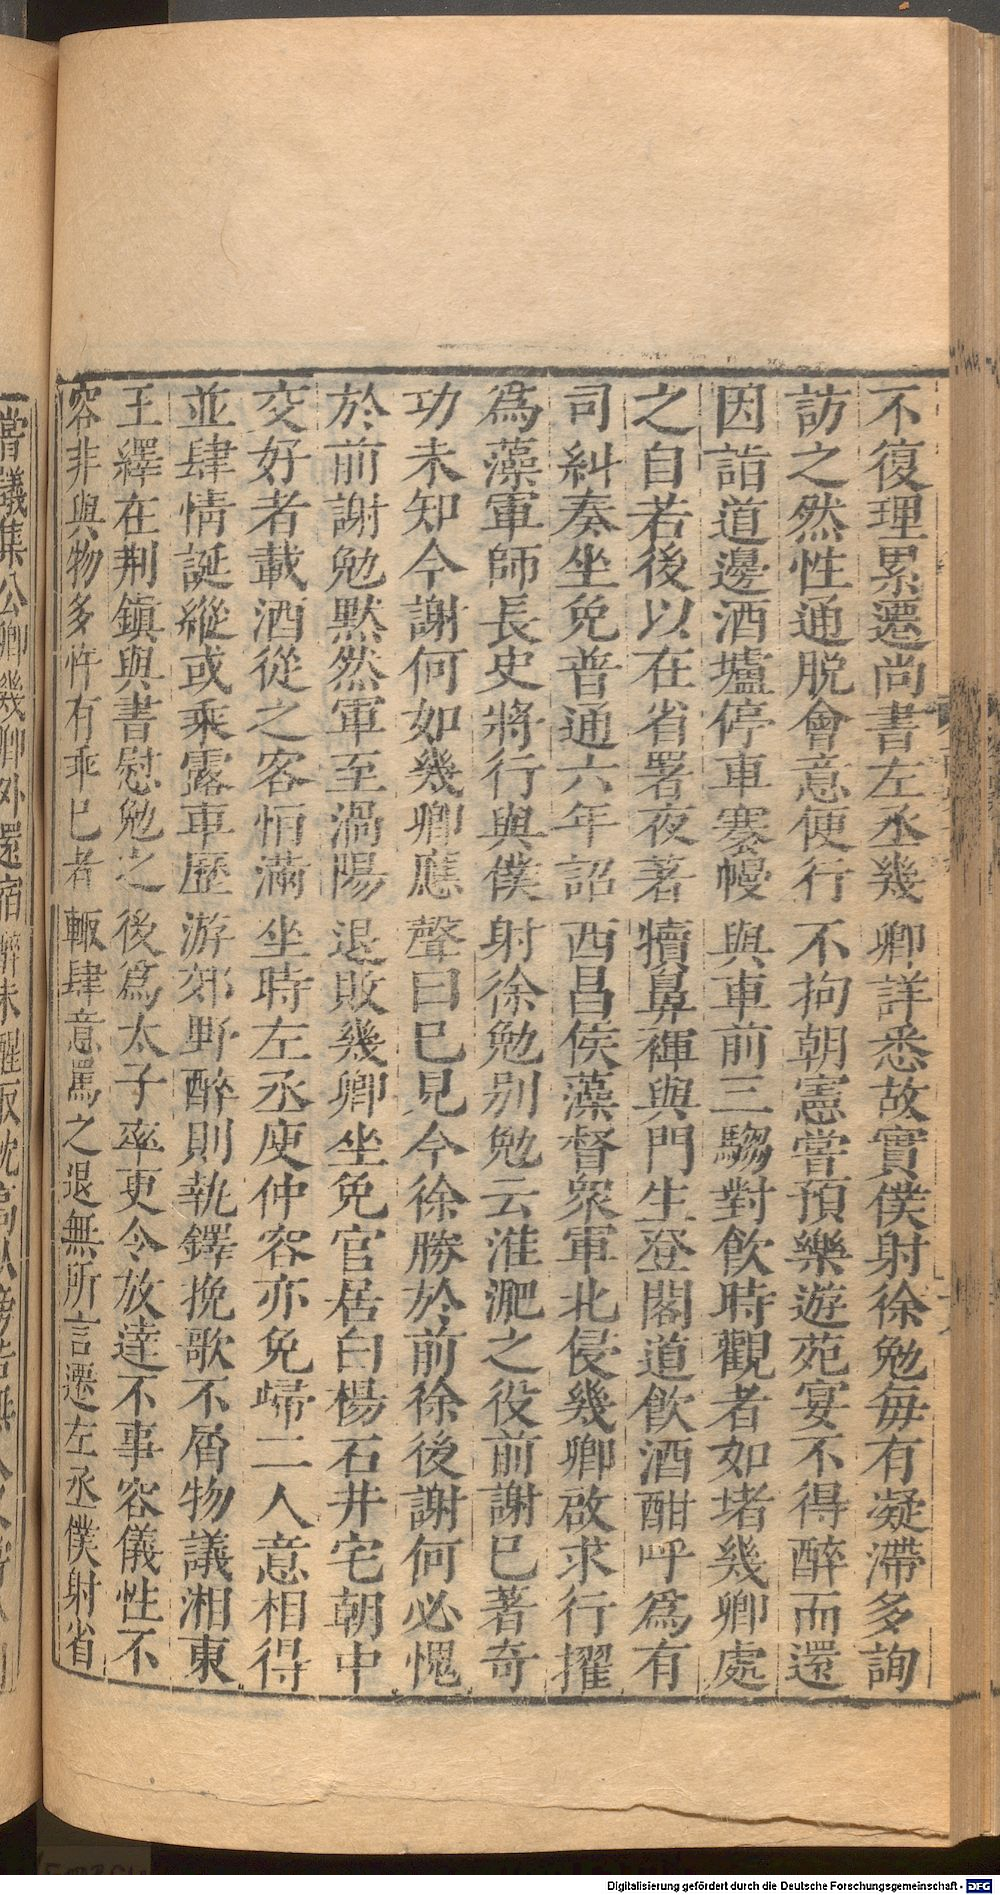 不復理累遷尚書左丞幾卿詳悉故實僕射徐勉每有凝滯多詢
訪之然性通脱會意便行不拘朝憲嘗預樂遊苑宴不得醉而還
因詣道邊酒壚停車褰幔與車前三騶對飲時觀者如堵幾卿處
之自若後以在省署夜著犢鼻褌與門生登閣道飲酒酣呼爲有
司糾奏坐免普通六年詔西昌侯藻督衆軍北侵幾卿啟求行擢
爲藻軍師長史將行與僕射徐勉别勉云淮淝之役前謝巳著奇
功未知今謝何如幾卿應聲曰巳見今徐勝於前徐後謝何必愧
於前謝勉默然軍至渦陽退敗幾卿坐免官居白楊石井宅朝中
交好者載酒從之客恒滿坐時左丞庾仲容亦免歸二人意相得
並肆情誕縱或乘露車歷游郊野醉則執鐸挽歌不屑物議湘東
王繹在荆鎮與書慰勉之後爲太子率更令放達不事容儀性不
容非與物多忤有乖巳者輒肆意罵之退無所言遷左丞僕射省
嘗議集公卿幾卿外還宿醉未醒取枕高臥傍若無人
Digitalisierung gefördert durch die Deutsche Forschungsgemeinschaft - DFG